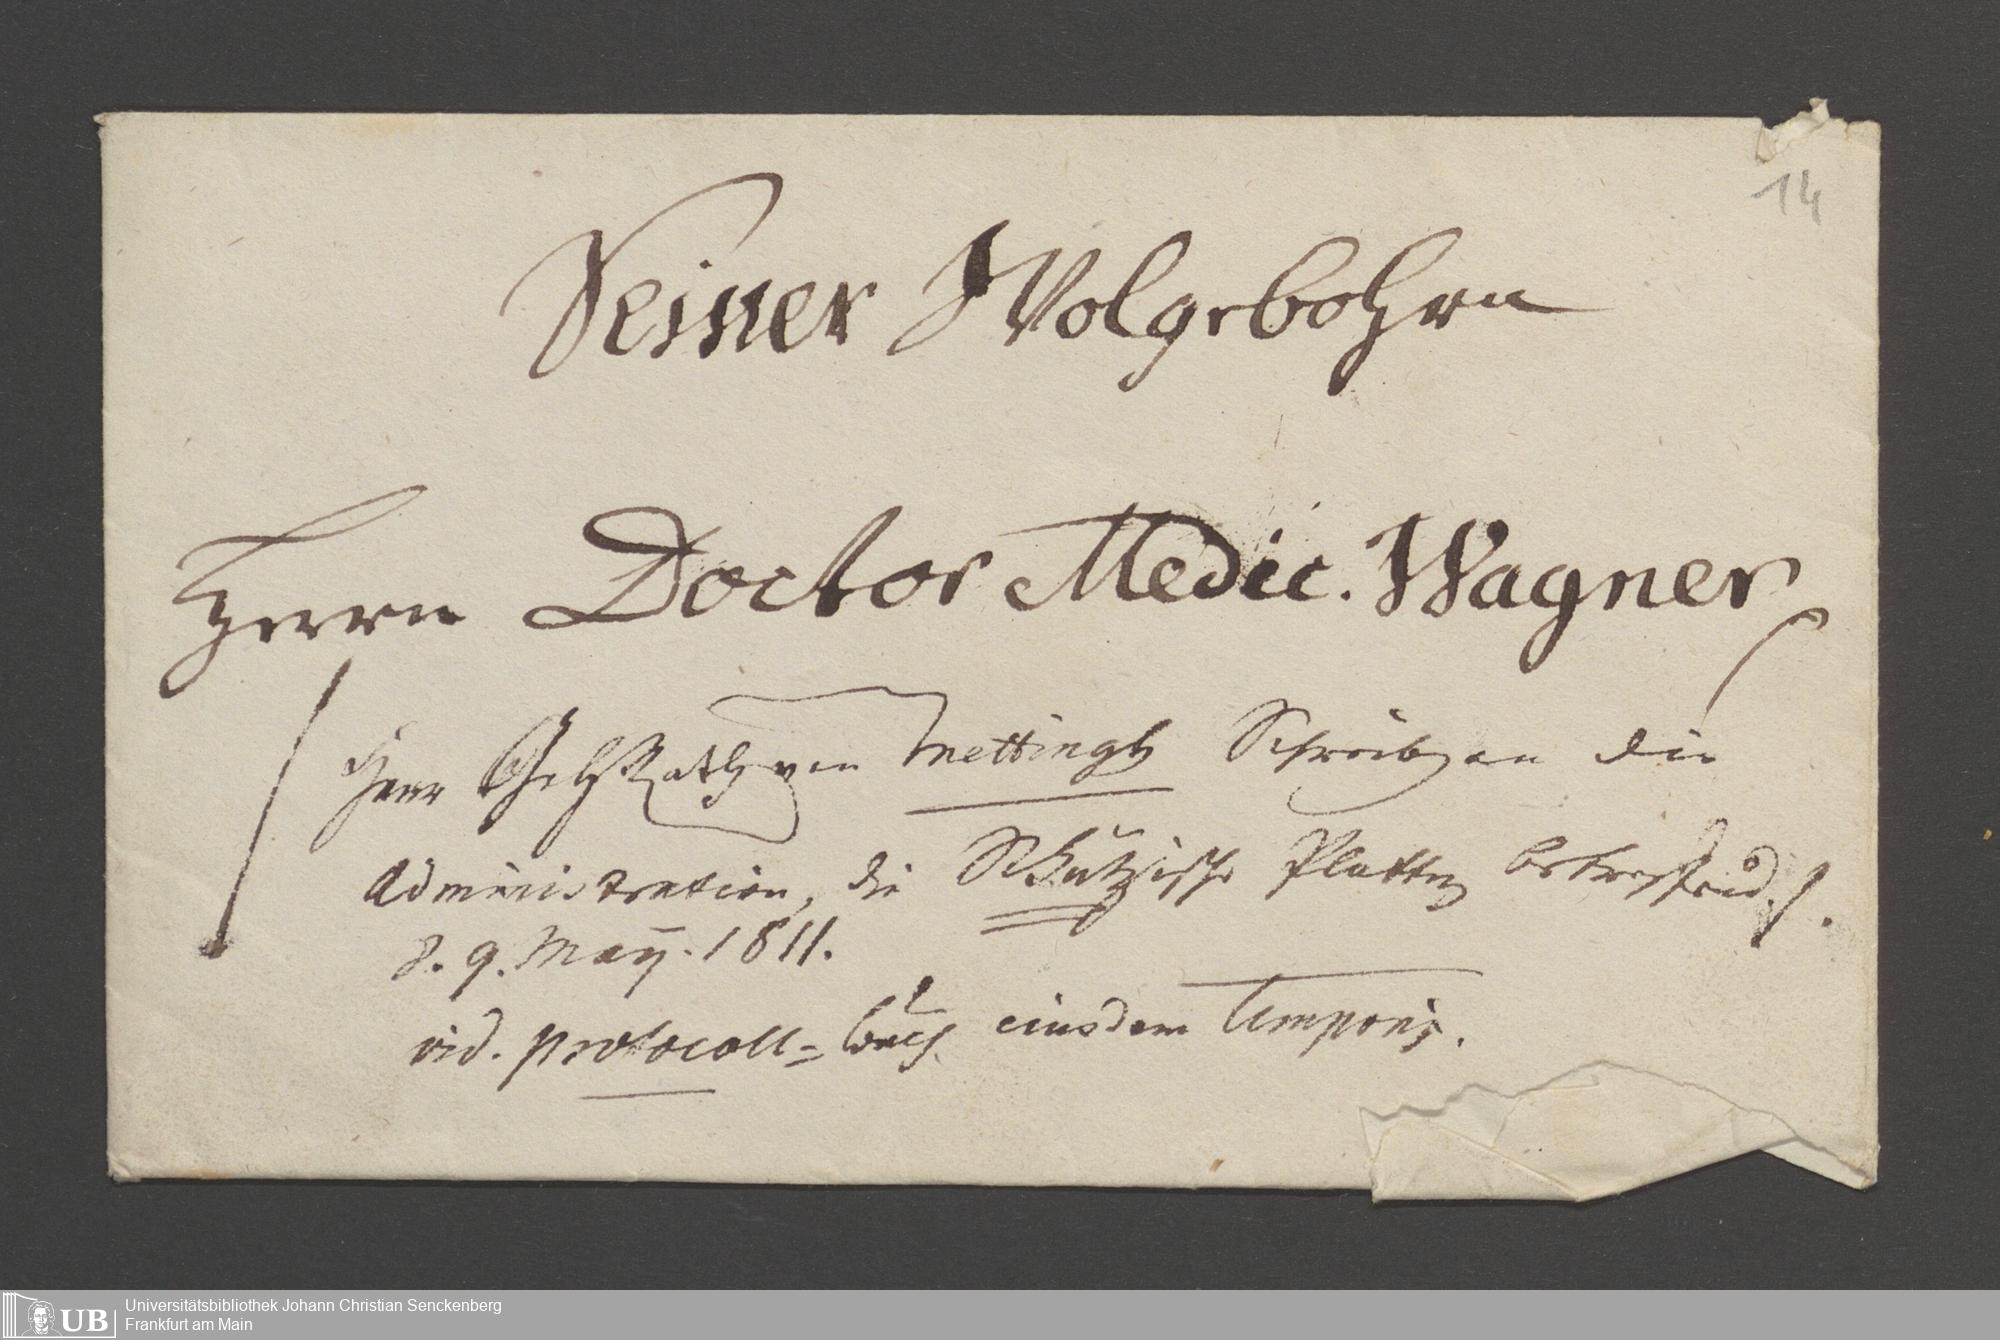 14
Seiner Wolgebohrn
Herrn Doctor Medic. Wagner
Herr GehRath von Mettingh Schreiben an die
Administration, die Schützische Platten betreffend.
d. 9. May. 1811.
vid. protocoll= buch eiusdem temporis.
Universitätsbibliothek Johann Christian Senckenberg
UB Frankfurt am Main